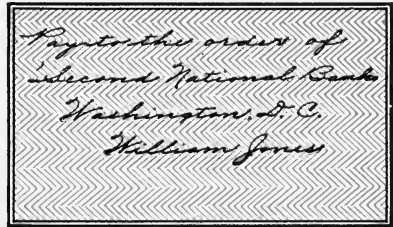 Pay to the order of
Second National Bank
Washington, D. C.
William Jones